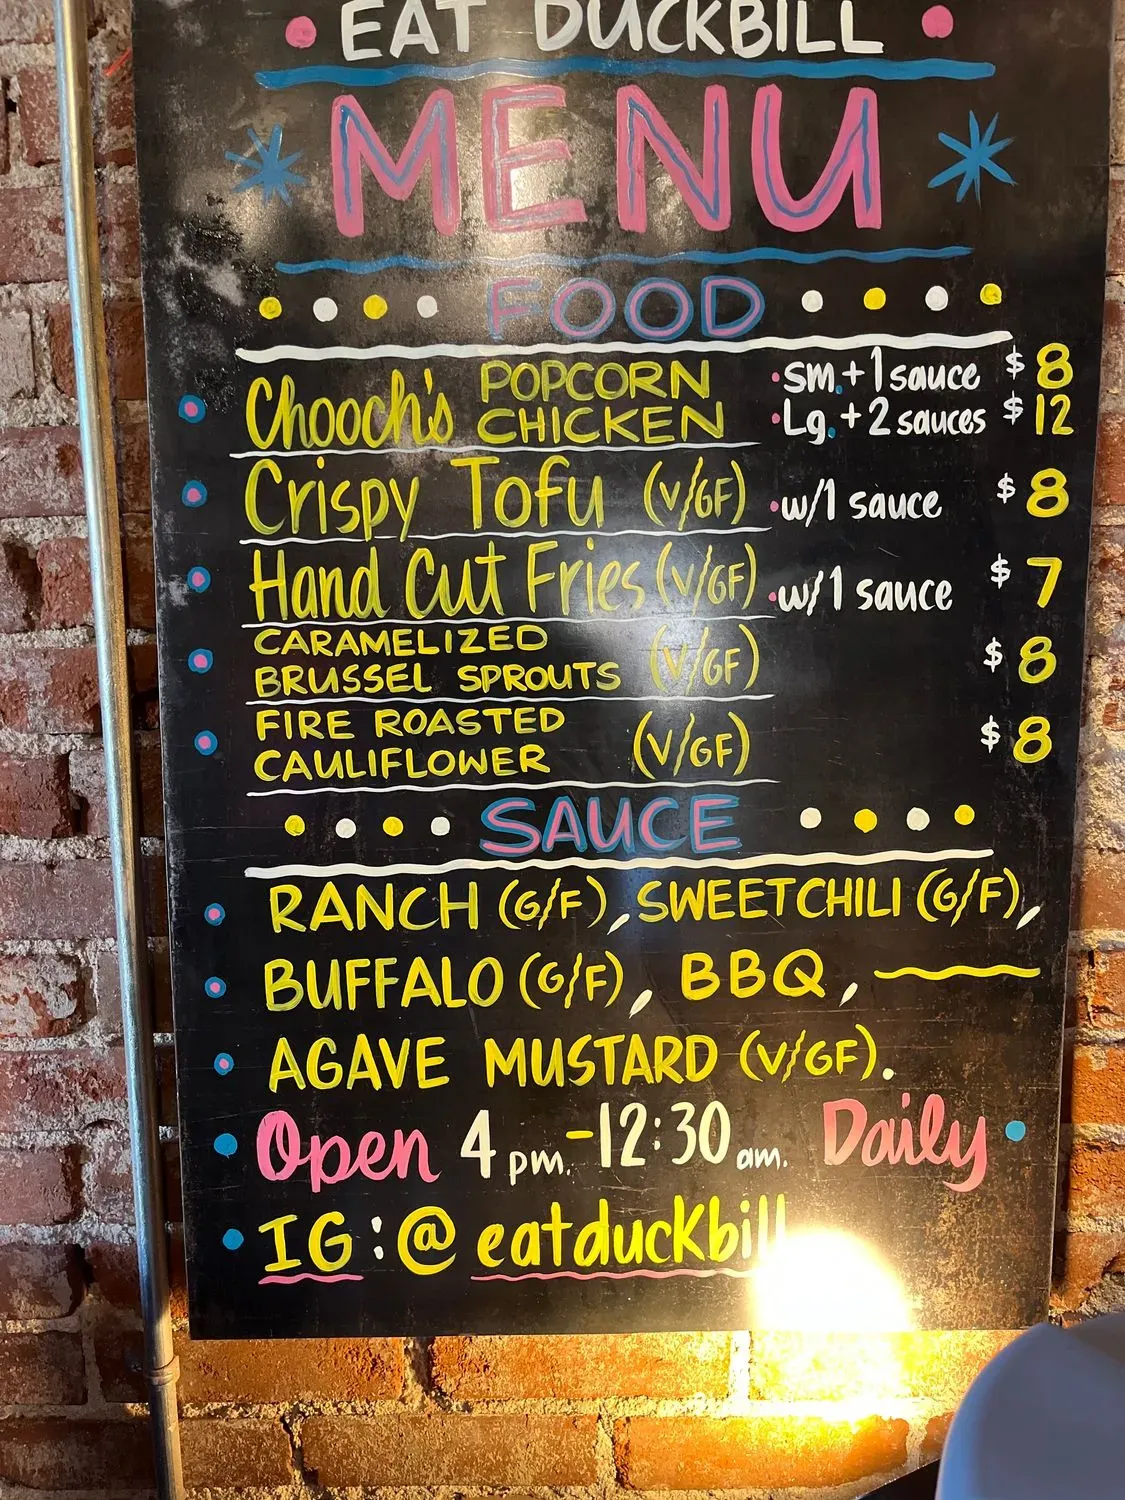 EAT DUCKBILL
MENU
FOOD
Chooch's POPCORN CHICKEN
• sm. + 1 sauce $8
• Lg. + 2 sauces $12
Crispy Tofu (V/GF) • w/1 sauce $8
Hand Cut Fries (V/GF) • w/1 sauce $7
CARAMELIZED
BRUSSEL SPROUTS (V/GF) $8
FIRE ROASTED
CAULIFLOWER (V/GF) $8
SAUCE
RANCH (G/F), SWEET CHILI (G/F),
BUFFALO (G/F), BBQ,
AGAVE MUSTARD (V/GF).
Open 4 pm. - 12:30 am. Daily
IG: @eatduckbill